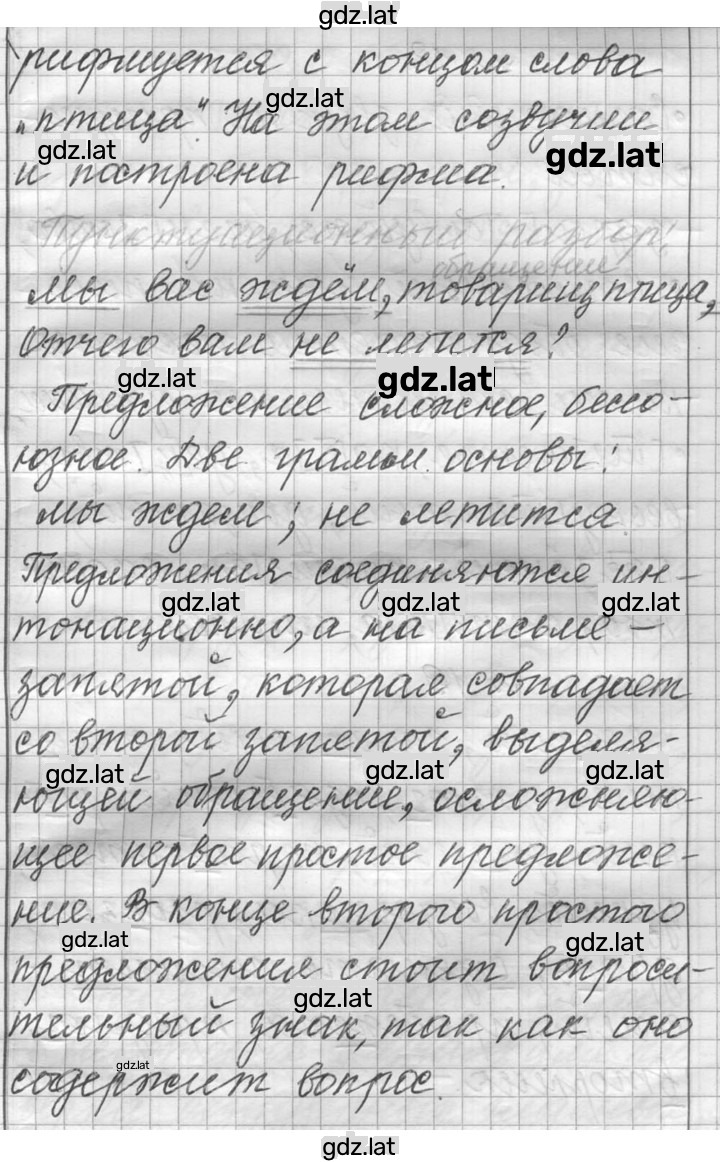 gdz.lat
рифмуется с концом слова
gdz.lat
„птица". На этом созвучии
gdz.lat
gdz.lat
и построена рифма.
Пунктуационный разбор:
обращение
мы вас ждём, товарищ птица,
Отчего вам не летится?
gdz.lat
gdz.lat
Предложение сложное, бессо-
юзное. Две грамм. основы:
мы ждем; не летится
Предложения соединяются ин-
gdz.lat gdz.lat gdz.lat
тонационно, а на письме –
запятой, которая совпадает
со второй запятой, выделя-
gdz.lat gdz.lat gdz.lat
ющей обращение, осложняю-
щее первое простое предложе-
ние. В конце второго простого
gdz.lat gdz.lat
предложения стоит вопроси-
gdz.lat
тельный знак, так как оно
gdz.lat
содержит вопрос.
gdz.lat